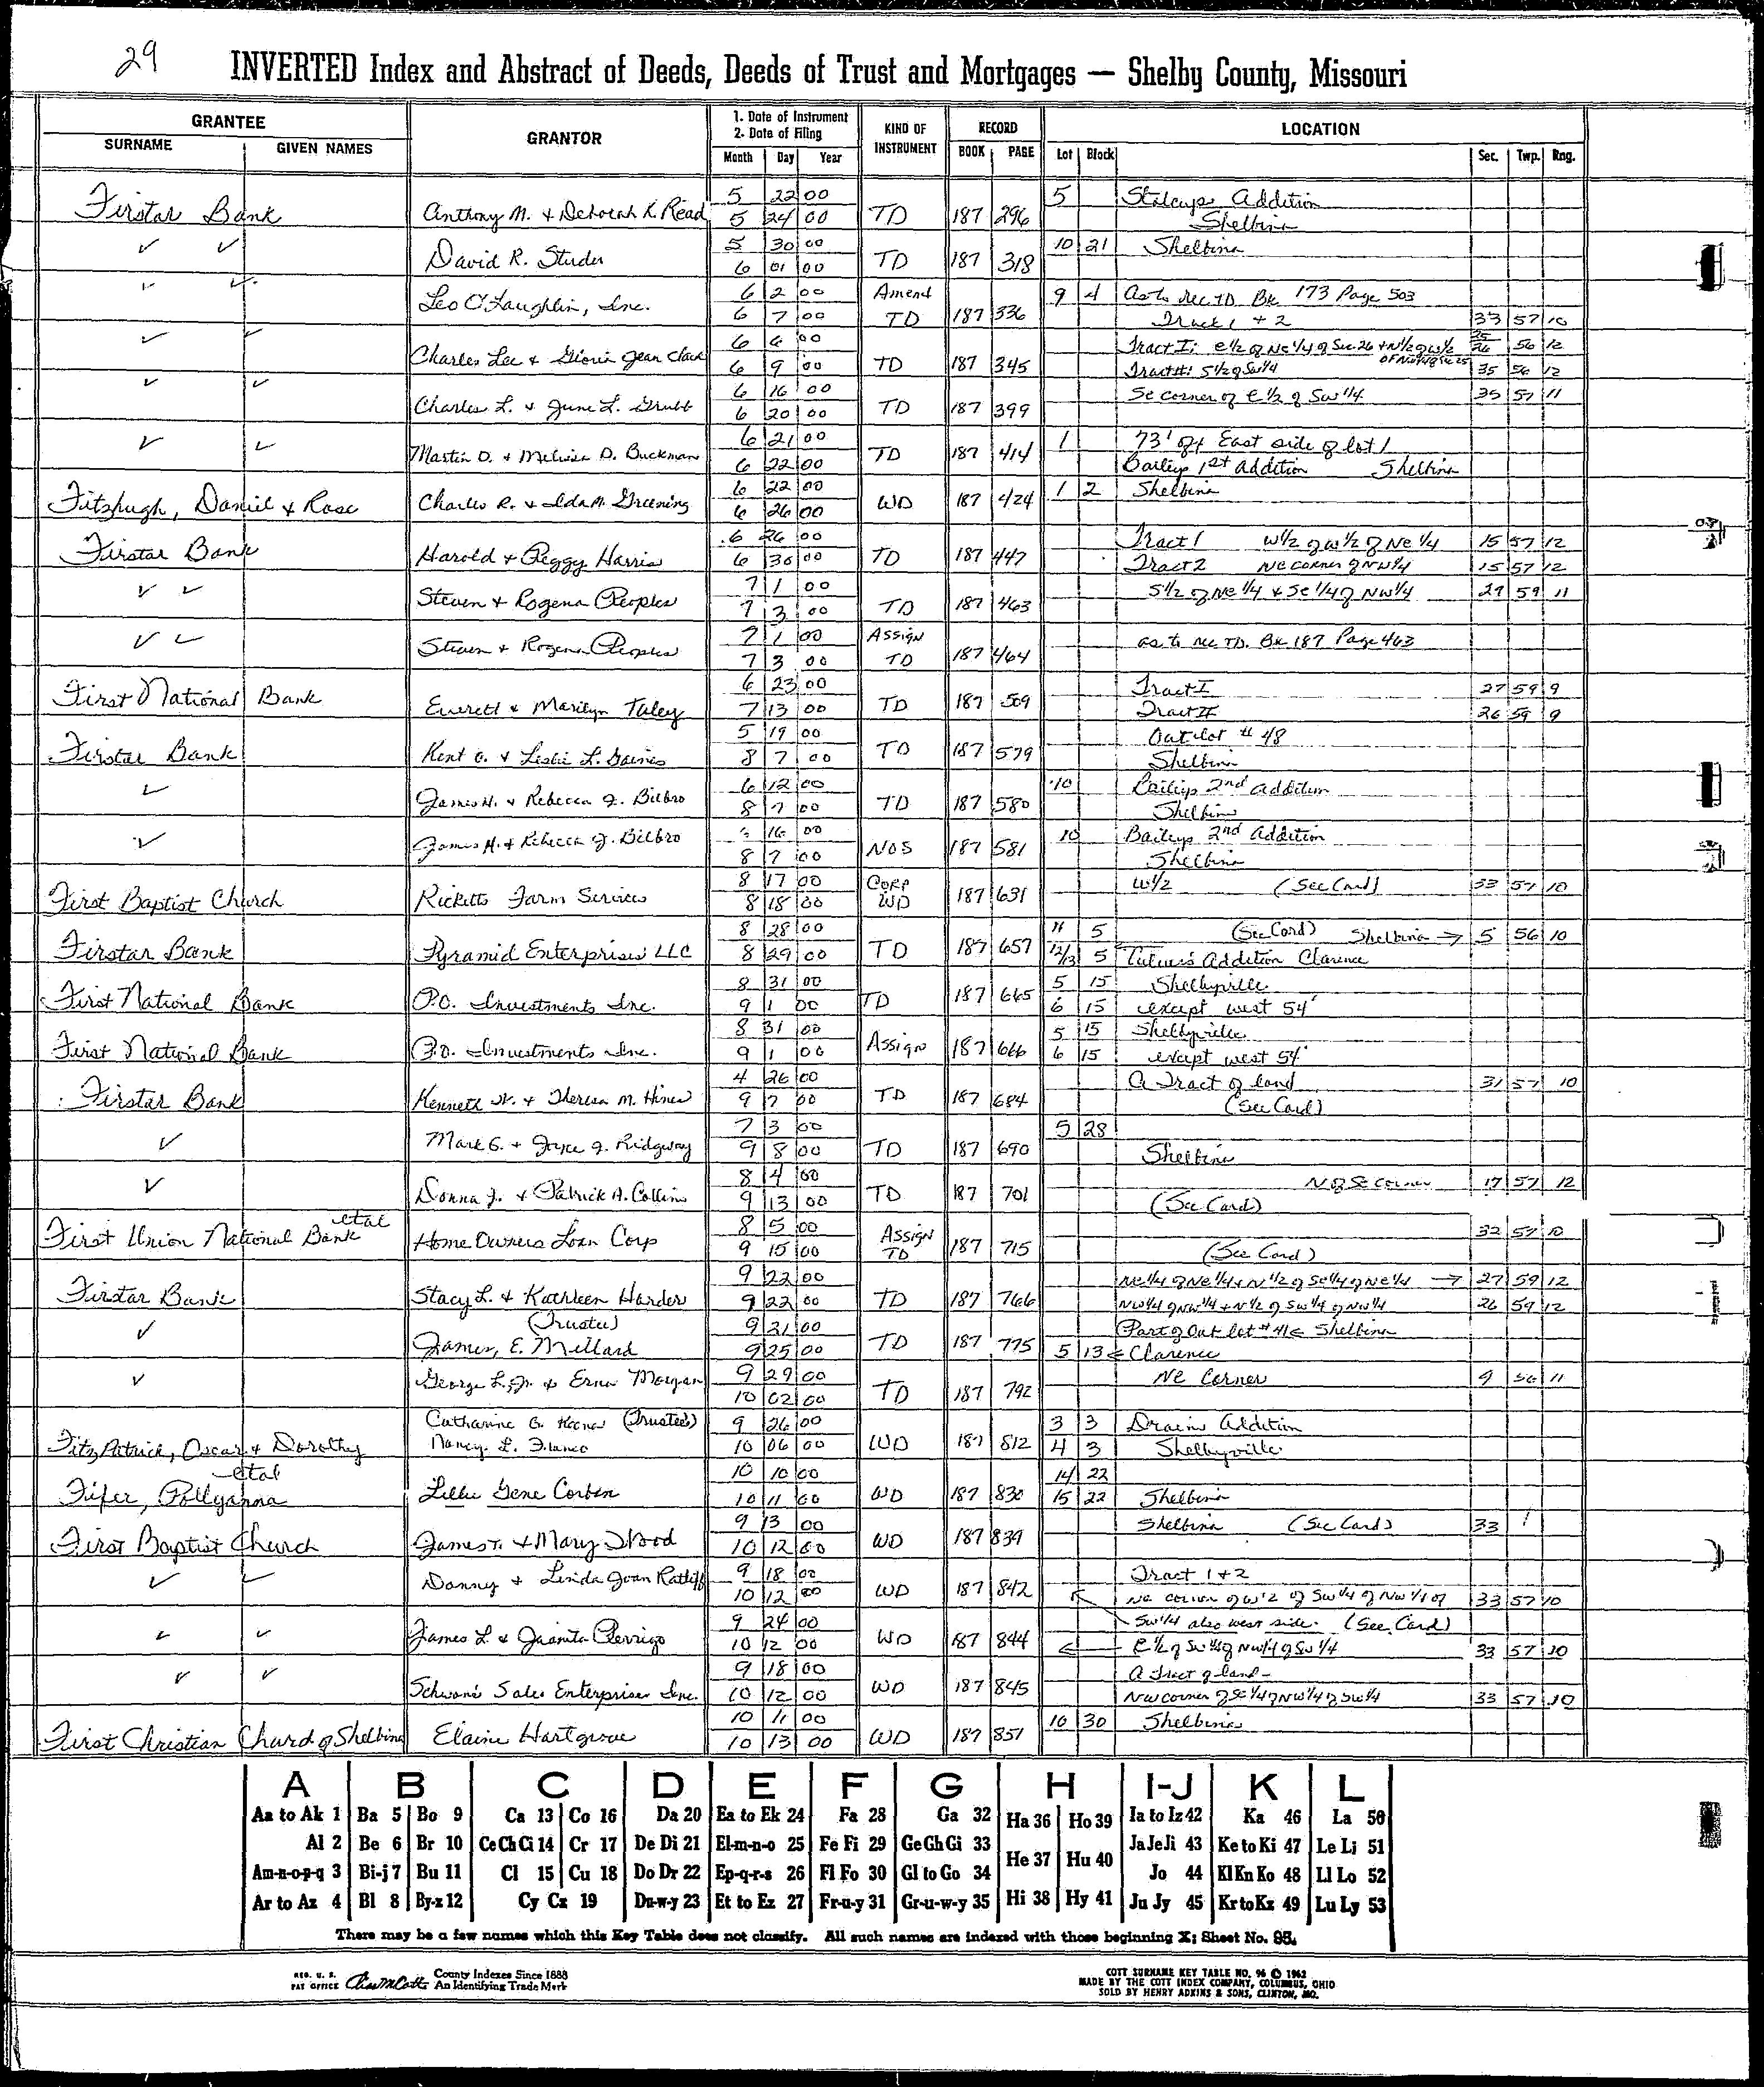 29
INVERTED Index and Abstract of Deeds, Deeds of Trust and Mortgages — Shelby County, Missouri
GRANTEE SURNAME GIVEN NAMES GRANTOR 1. Date of Instrument 2. Date of Filing Month Day Year KIND OF INSTRUMENT RECORD BOOK PAGE LOCATION Lot Block Sec. Twp. Rng.
5 22 00 5 Stalcups Addition
Firstar Bank Anthony M. & Deborah K. Read 5 24 00 TD 187 296 Shelbina
✓ ✓ 5 30 00 10 21 Shelbina
David R. Studer 6 01 00 TD 187 318
✓ ✓ 6 2 00 Amend 9 4 as to rec TD Bk 173 Page 503
Leo O'Laughlin, Inc. 6 7 00 TD 187 336 Track 1 + 2 33 57 10
✓ ✓ 6 6 00 Tract I: E½ of Ne ¼ of Sec. 26 + N½ of W½ of Nw¼ of Sec 25 25 26 56 12
Charles Lee & Gloria Jean Clark 6 9 00 TD 187 345 Tract II: S½ of Sw¼ 35 56 12
✓ ✓ 6 16 00 Se corner of E ½ of Sw ¼ 35 57 11
Charles L. & June L. Grubb 6 20 00 TD 187 399
✓ ✓ 6 21 00 1 73' off East side of lot 1
Martin D. & Melissa D. Buckman 6 22 00 TD 187 414 Baileys 1st Addition Shelbina
6 22 00 1 2 Shelbina
Fitzhugh, Daniel & Rose Charles R. & Ida M. Greening 6 26 00 WD 187 424
6 26 00 Tract 1 W½ of W½ of Ne ¼ 15 57 12
Firstar Bank Harold & Peggy Harris 6 30 00 TD 187 447 Tract 2 NE corner of NW¼ 15 57 12
✓ ✓ 7 1 00 S½ of Ne ¼ & Se ¼ of NW¼ 27 59 11
Steven & Rogena Peoples 7 3 00 TD 187 463
✓ ✓ 7 1 00 Assign as to rec TD. Bk 187 Page 463
Steven & Rogena Peoples 7 3 00 TD 187 464
6 23 00 Tract I 27 59 9
First National Bank Everett & Marilyn Taley 7 13 00 TD 187 509 Tract II 26 59 9
5 19 00 Out lot # 48
Firstar Bank Kent O. & Leslie L. Gaines 8 7 00 TD 187 579 Shelbina
✓ 6 12 00 10 Baileys 2nd Addition
James H. & Rebecca J. Bilbro 8 7 00 TD 187 580 Shelbina
✓ 16 00 10 Baileys 2nd Addition
James H. & Rebecca J. Bilbro 8 7 00 NOS 187 581 Shelbina
8 17 00 Corp W½ (See Card) 33 57 10
First Baptist Church Ricketts Farm Services 8 18 00 WD 187 631
8 28 00 11 5 (See Card) Shelbina → 5 56 10
Firstar Bank Pyramid Enterprises LLC 8 29 00 TD 187 657 12/13 5 Addition Clarence
8 31 00 5 15 Shelbyville
First National Bank P.O. Investments Inc. 9 1 00 TD 187 665 6 15 except west 54'
8 31 00 5 15 Shelbyville
First National Bank P.O. Investments Inc. 9 1 00 Assign 187 666 6 15 except west 54'
4 26 00 A Tract of land 31 57 10
Firstar Bank Kenneth W. & Theresa M. Hines 9 7 00 TD 187 684 (See Card)
7 3 00 5 28
✓ Mark G. & Joyce J. Ridgway 9 8 00 TD 187 690 Shelbina
✓ 8 4 00 N of Se corner 17 57 12
Donna J. & Patrick A. Collins 9 13 00 TD 187 701 (See Card)
etal 8 5 00 Assign 32 57 10
First Union National Bank Home Owners Loan Corp 9 15 00 TD 187 715 (See Card)
9 22 00 Ne ¼ of Ne ¼ & N ½ of Se¼ of Ne ¼ → 27 59 12
Firstar Bank Stacy L. & Kathleen Harder 9 22 00 TD 187 766 NW¼ of NW¼ + N½ of SW¼ of NW¼ 26 59 12
✓ (Trustee) 9 21 00 Part of Out lot # 41 ← Shelbina
James, E. Millard 9 25 00 TD 187 775 5 13 ← Clarence
✓ George L. Jr. & Erna Morgan 9 29 00 NE Corner 9 56 11
10 02 00 TD 187 792
Catharine G. Keener (Trustees) 9 26 00 3 3 Drains Addition
FitzPatrick, Oscar & Dorothy Nancy L. Franco 10 06 00 WD 187 812 4 3 Shelbyville
etal 10 10 00 14 22
Fifer, Pollyanna Lillie Gene Corbin 10 11 00 WD 187 830 15 22 Shelbina
9 13 00 Shelbina (See Card) 33
First Baptist Church James T. & Mary Wood 10 12 00 WD 187 839
✓ ✓ Danny & Linda Joan Ratliff 9 18 00 Tract 1 + 2
10 12 00 WD 187 842 Ne corner of W½ of Sw ¼ of Nw ¼ of 33 57 10
✓ ✓ 9 24 00 Sw¼ also west side. (See Card)
James L. & Juanita Perrigo 10 12 00 WD 187 844 ← E ½ of Sw ¼ of NW¼ of Sw ¼ 33 57 10
✓ ✓ 9 18 00 A Tract of land -
Schwan's Sales Enterprises Inc. 10 12 00 WD 187 845 NW corner of Se ¼ of NW¼ of SW¼ 33 57 10
10 11 00 10 30 Shelbina
First Christian Church of Shelbina Elaine Hartgrove 10 13 00 WD 187 851
A B C D E F G H I-J K L
Aa to Ak 1 Ba 5 Bo 9 Ca 13 Co 16 Da 20 Ea to Ek 24 Fa 28 Ga 32 Ha 36 Ho 39 Ia to Iz 42 Ka 46 La 50
Al 2 Be 6 Br 10 Ce Ch Ci 14 Cr 17 De Di 21 El-m-n-o 25 Fe Fi 29 Ge Gh Gi 33 He 37 Hu 40 Ja Je Ji 43 Ke to Ki 47 Le Li 51
Am-n-o-p-q 3 Bi-j 7 Bu 11 Cl 15 Cu 18 Do Dr 22 Ep-q-r-s 26 Fl Fo 30 Gl to Go 34 Jo 44 Kl Kn Ko 48 Ll Lo 52
Ar to Az 4 Bl 8 By-z 12 Cy Cz 19 Du-w-y 23 Et to Ez 27 Fr-u-y 31 Gr-u-w-y 35 Hi 38 Hy 41 Ju Jy 45 Kr to Kz 49 Lu Ly 53
There may be a few names which this Key Table does not classify. All such names are indexed with those beginning X; Sheet No. 95.
REG. U. S. PAT OFFICE County Indexes Since 1888 An Identifying Trade Mark
COTT SURNAME KEY TABLE NO. 96 © 1962
MADE BY THE COTT INDEX COMPANY, COLUMBUS, OHIO
SOLD BY HENRY ADKINS & SONS, CLINTON, MO.